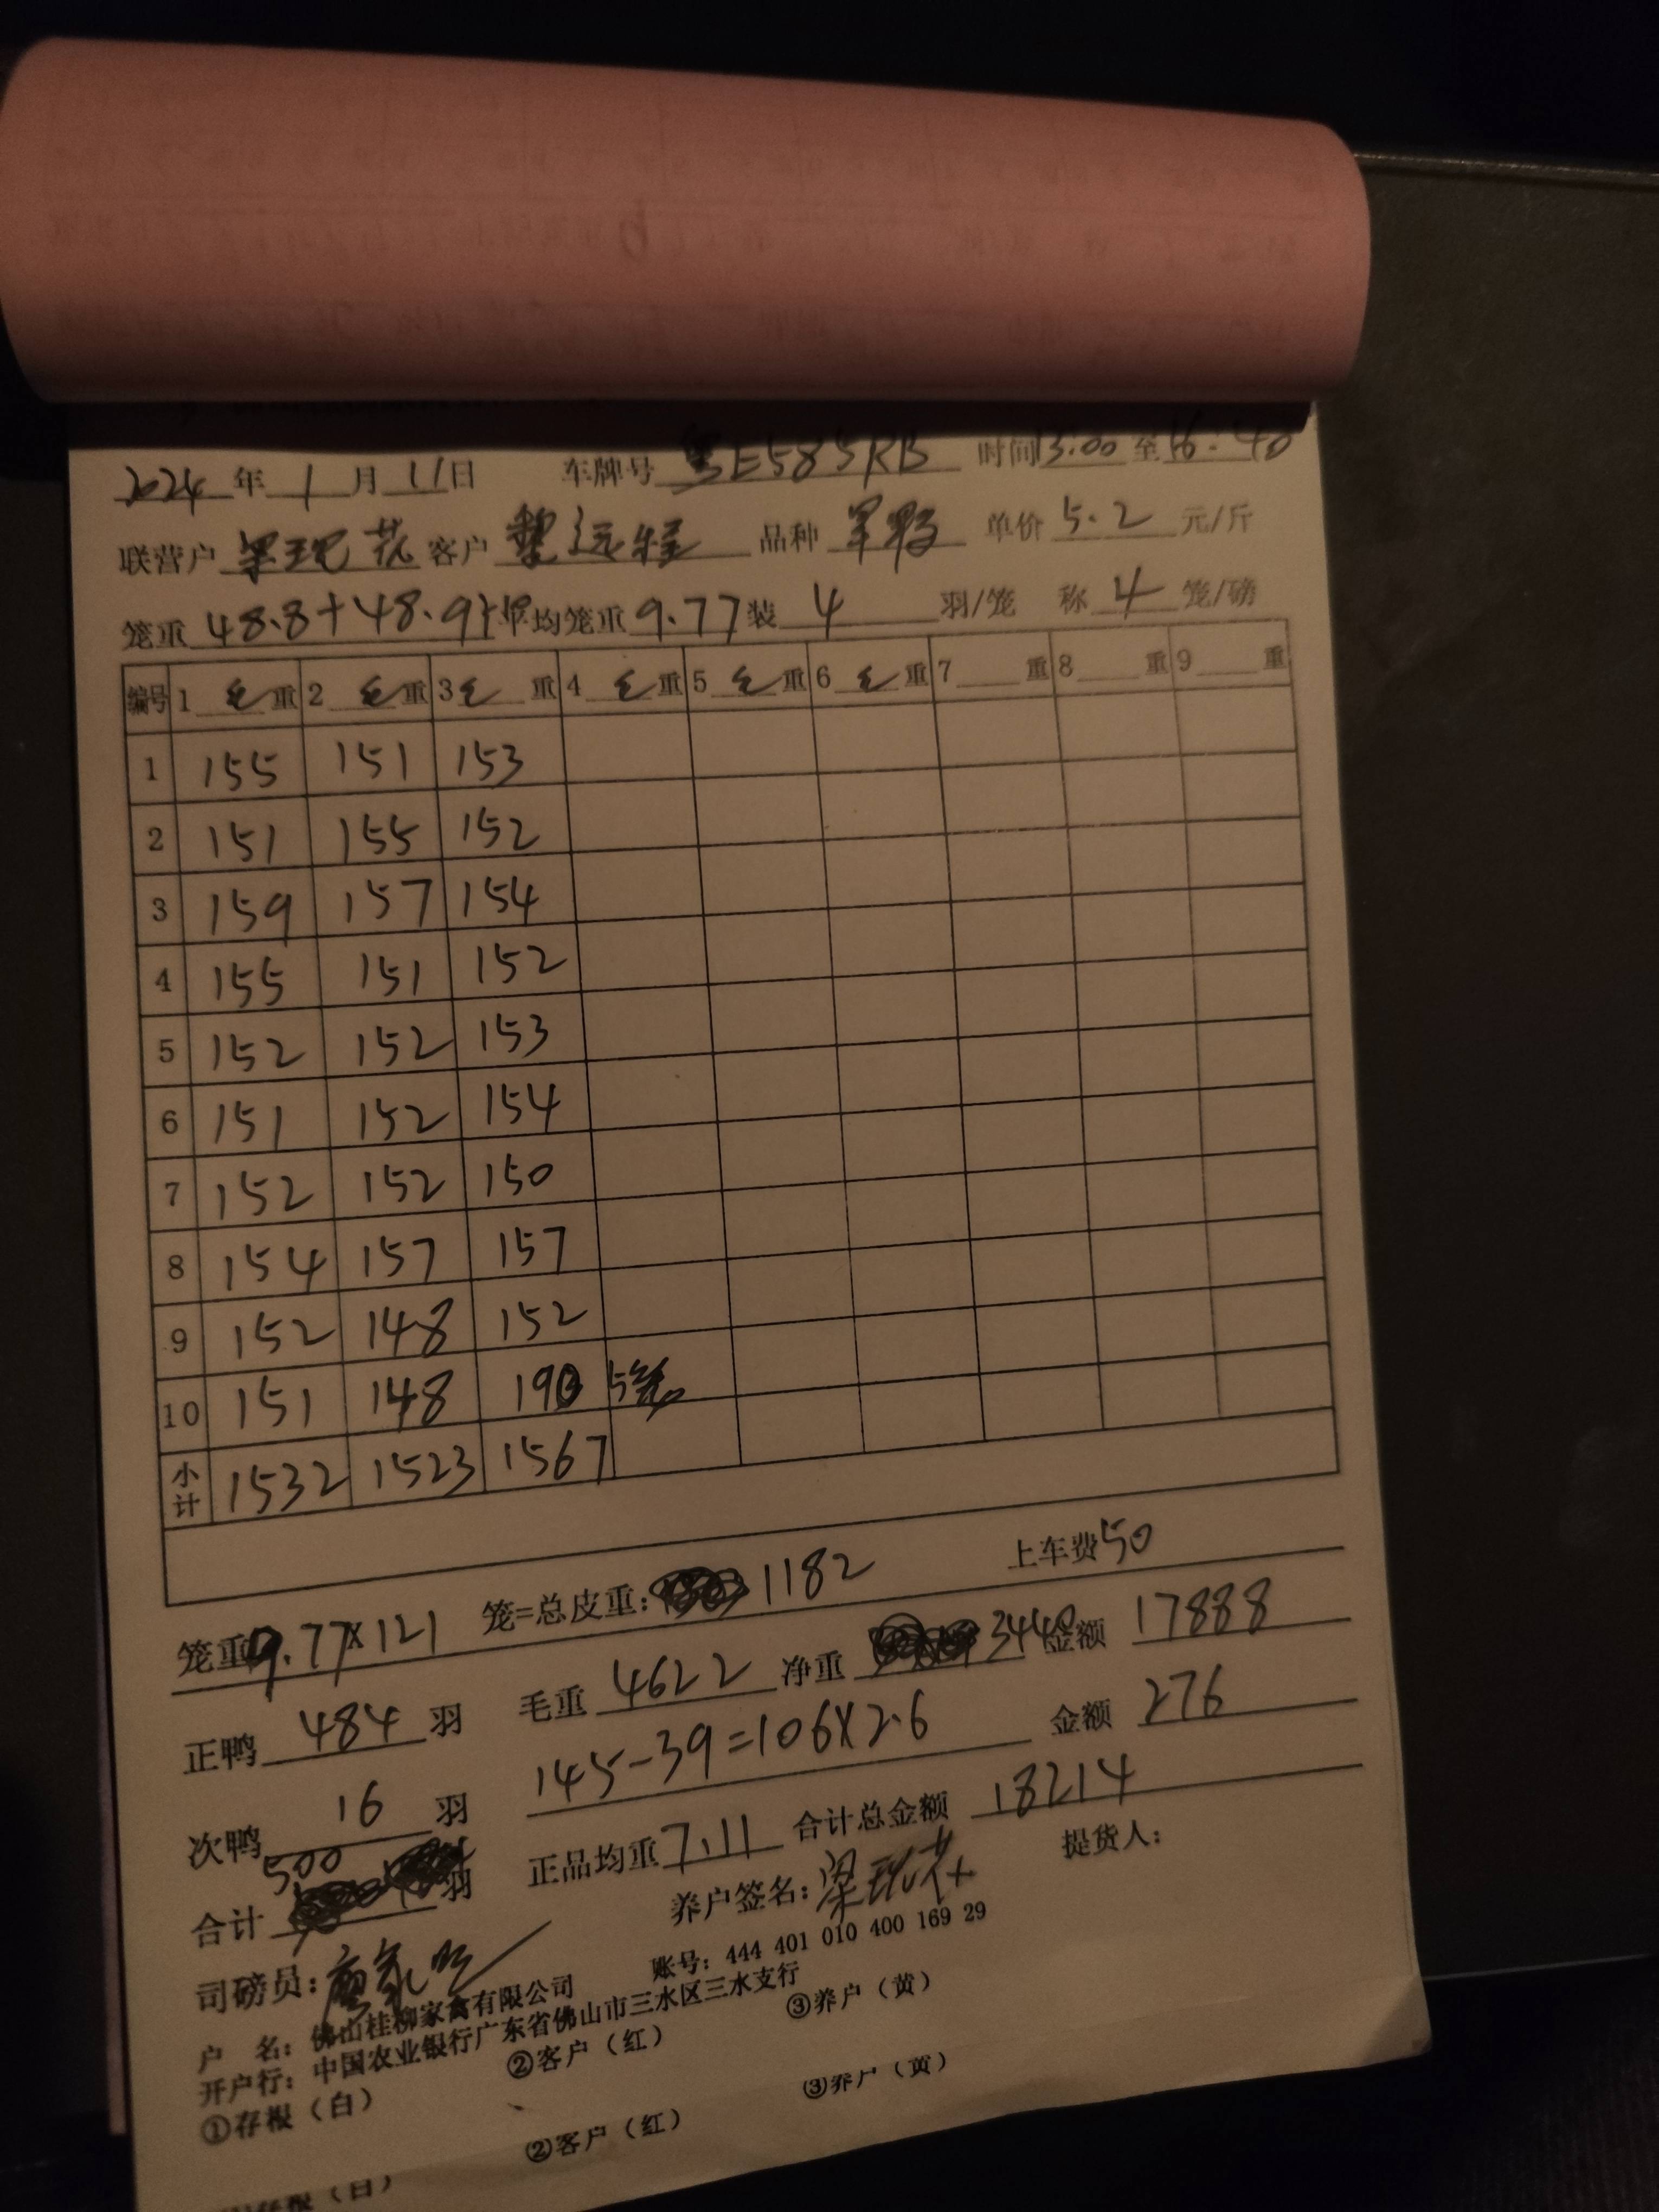 2024年1月11日 车牌号 粤E585RB 时间13:00至16:40
联营户 梁玩花 客户 黎远程 品种 单价 5.2 元/斤
笼重 48.8+48.9 平均笼重 9.77 装 4 羽/笼 称 4 笼/磅
编号 1 毛重 2 毛重 3 毛重 4 毛重 5 毛重 6 毛重 7 重 8 重 9 重
1 155 151 153
2 151 155 152
3 159 157 154
4 155 151 152
5 152 152 153
6 151 152 154
7 152 152 150
8 154 157 157
9 152 148 152
10 151 148 190 5笼
小计 1532 1523 1567
笼重9.77×121 笼=总皮重: 1182 上车费50
正鸭 484 羽 毛重 4622 净重 3440 金额 17888
次鸭 16 羽 145-39=106×2.6 金额 276
合计 500 羽 正品均重 7.11 合计总金额 18214
司磅员: 养户签名: 梁玩花 提货人:
户 名: 佛山桂柳家禽有限公司 账号: 444 401 010 400 169 29
开户行: 中国农业银行广东省佛山市三水区三水支行
①存根(白) ②客户(红) ③养户(黄)
②客户(红) ③养户(黄)